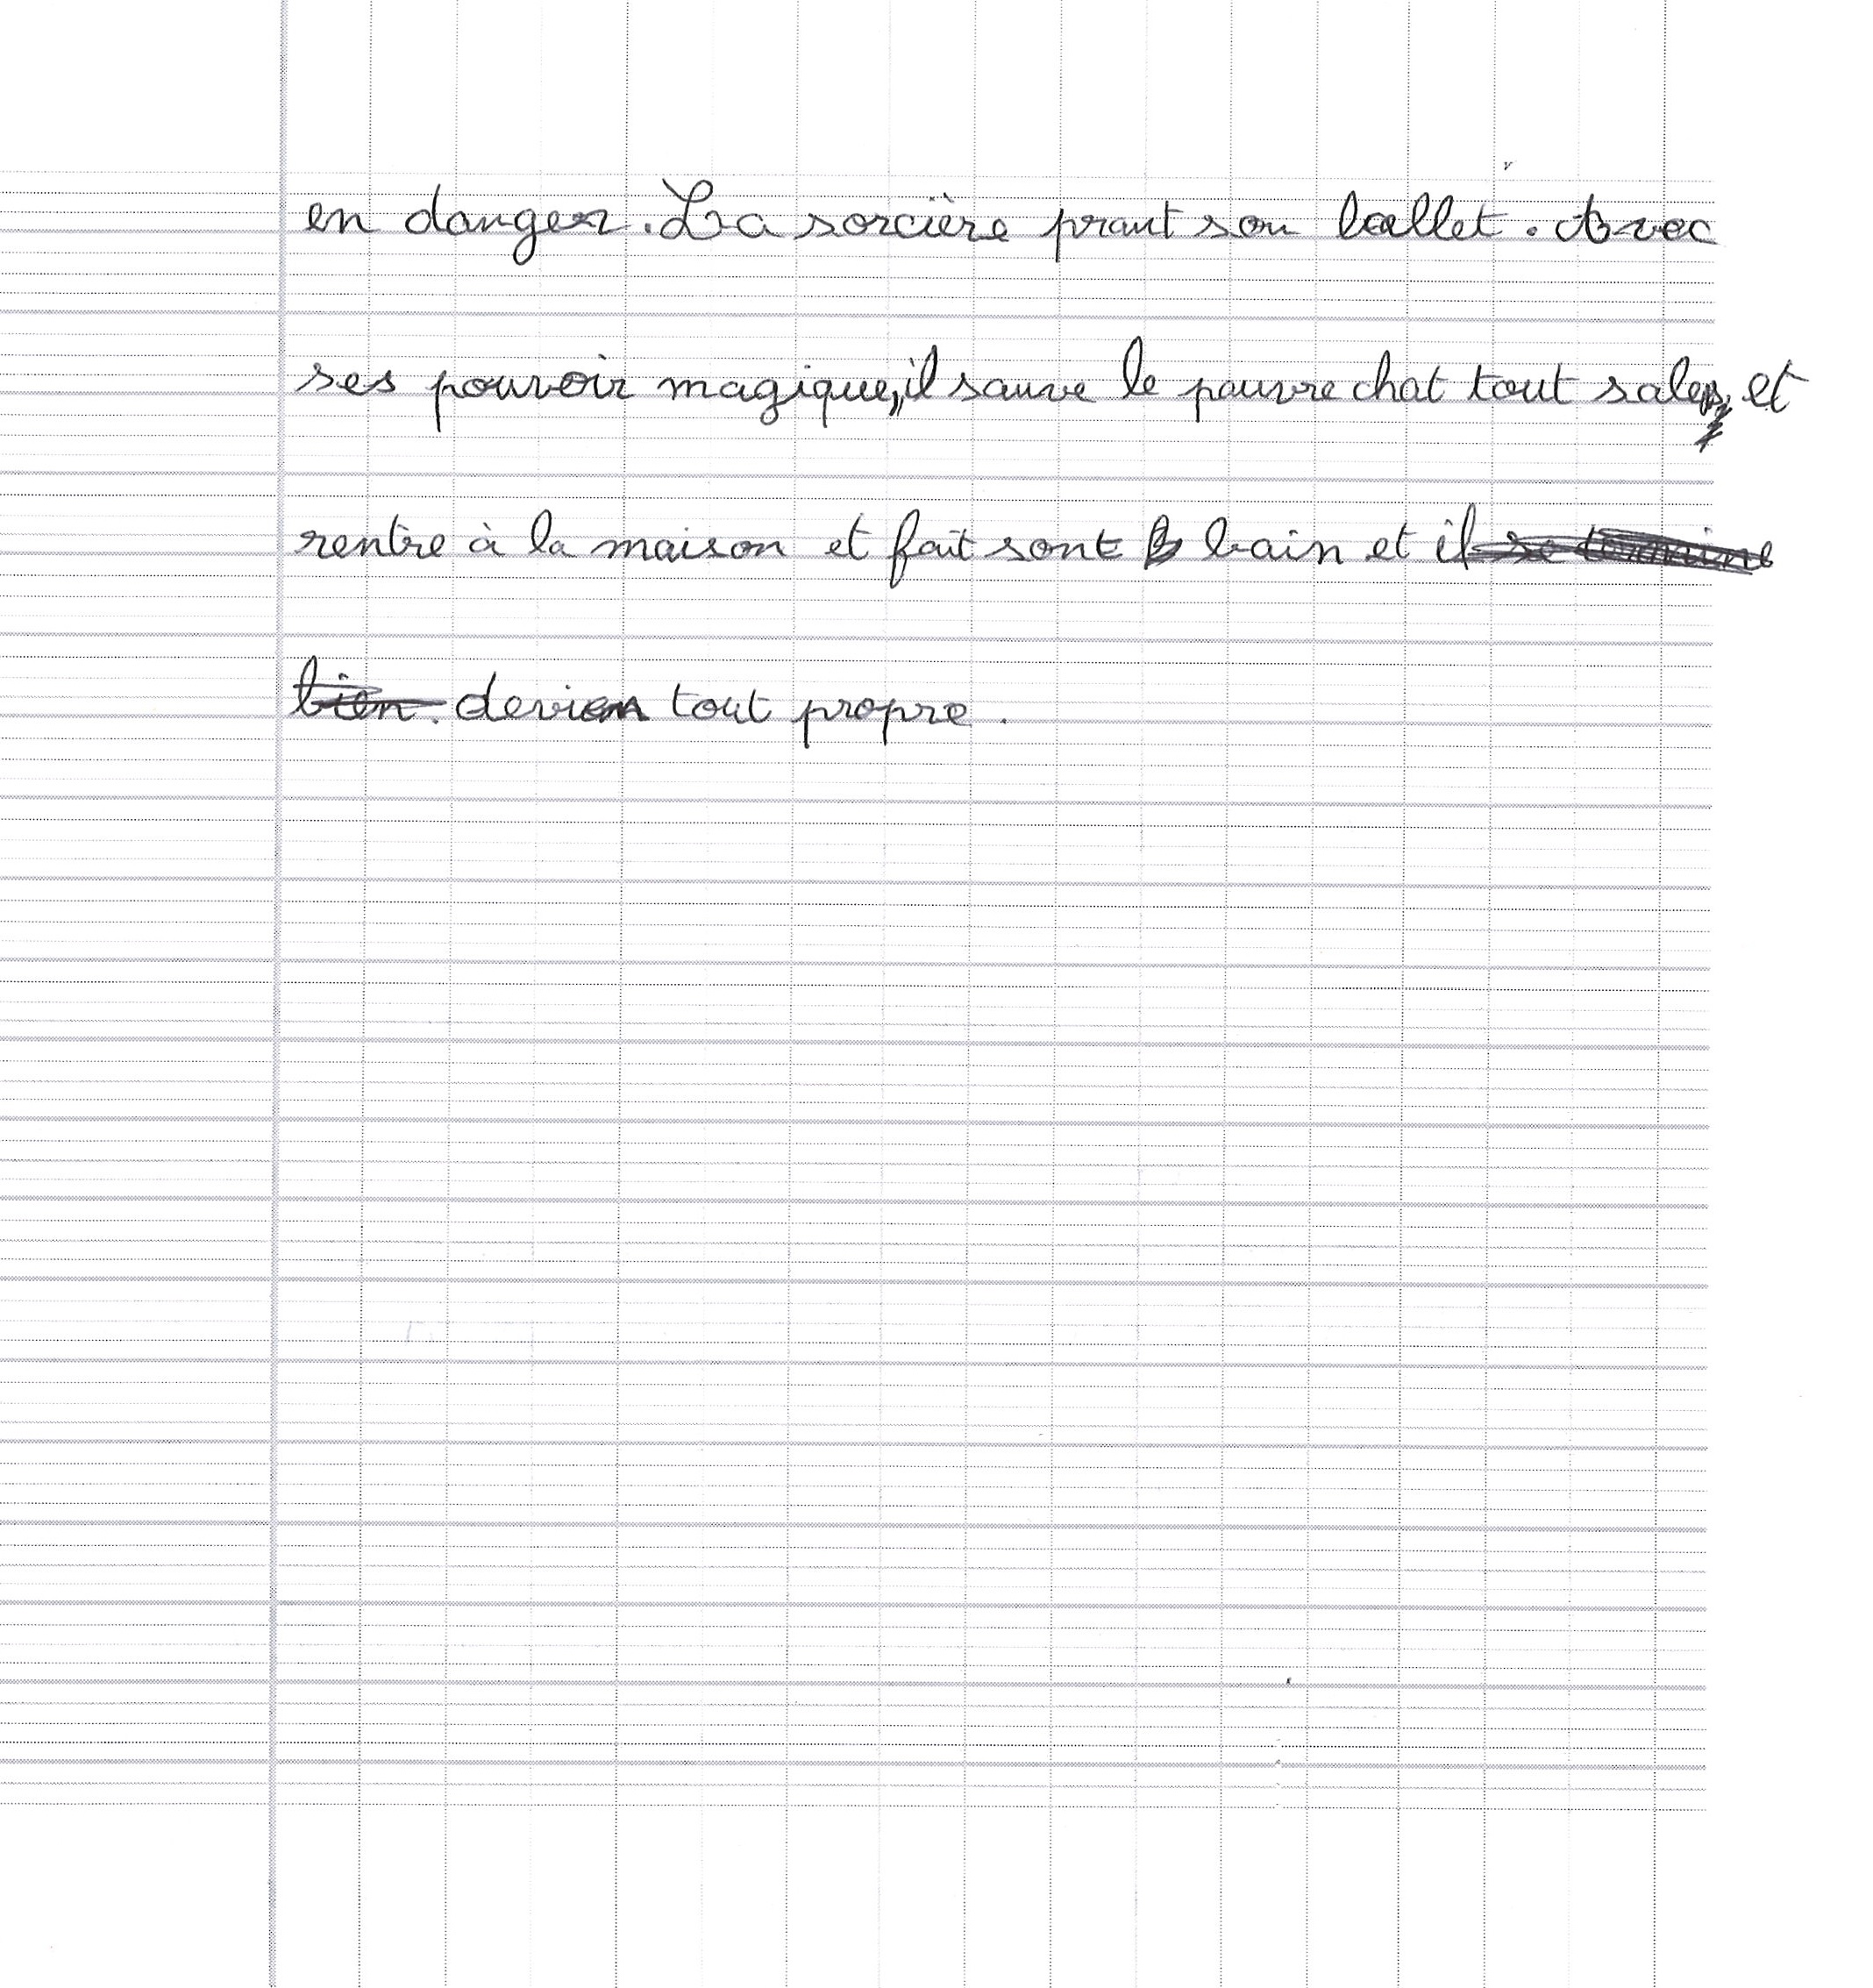 en danger. La sorcière prant son ballet. Avec
ses pouvoir magique, il sauve le pauvre chat tout sale, et
rentre à la maison et fait sont bain et il se termine
bien. devien tout propre.